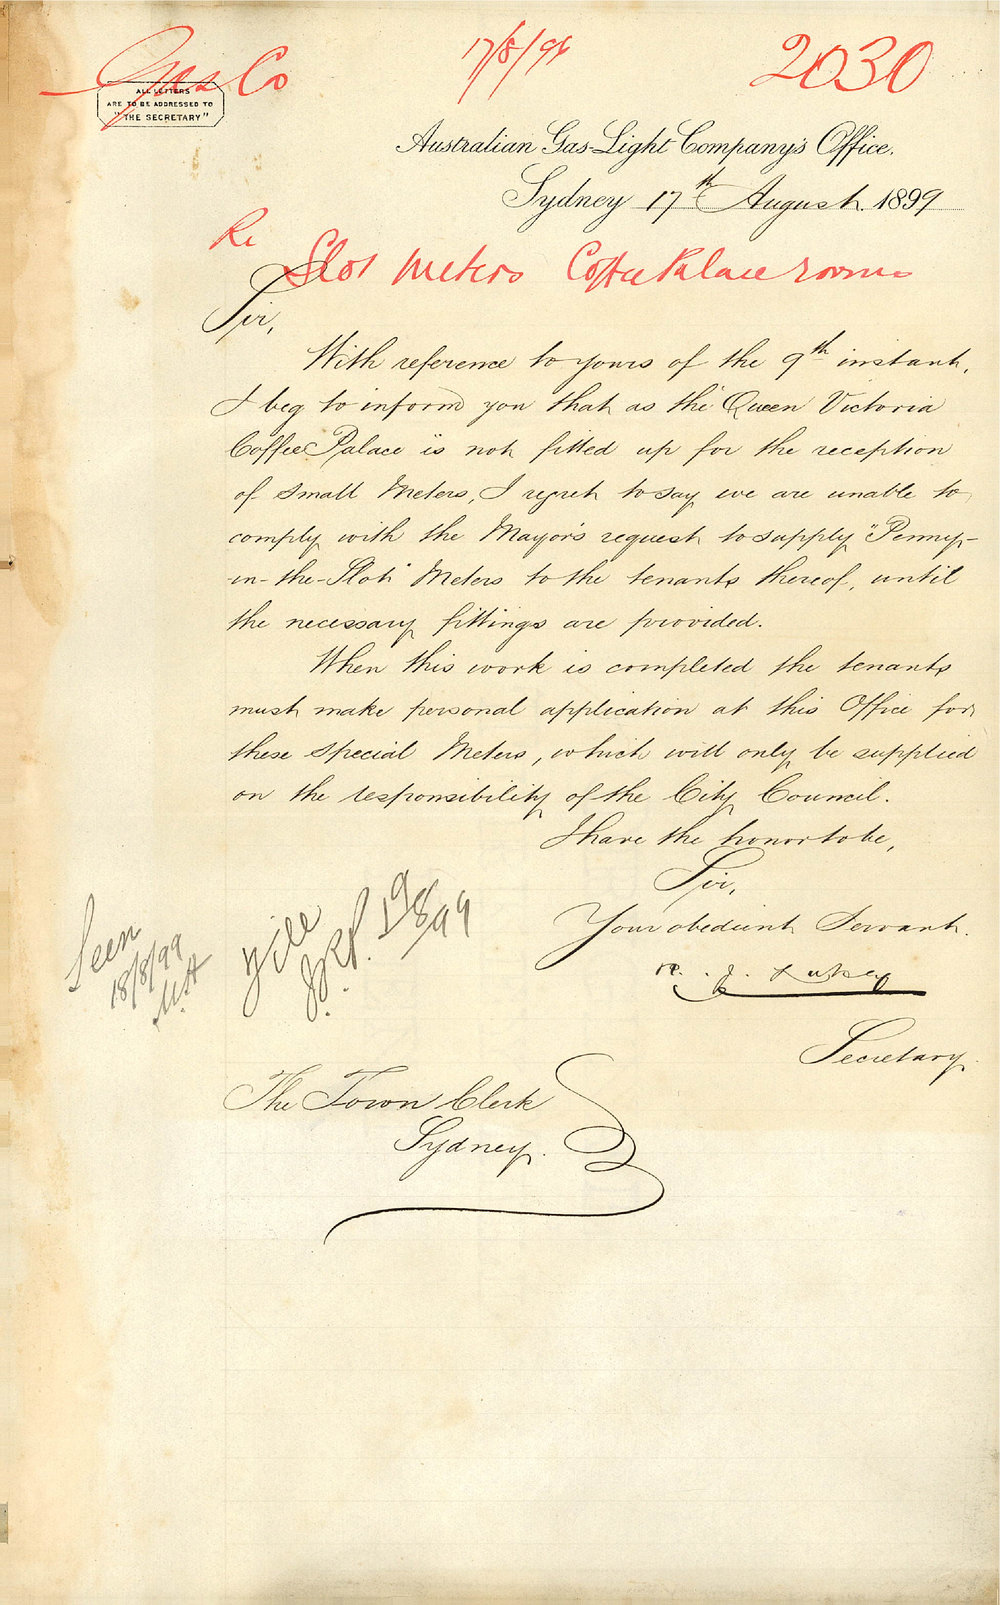 Gas Co
17/8/99
2030
ALL LETTERS
ARE TO BE ADDRESSED TO
"THE SECRETARY"
Australian Gas-Light Company's Office.
Sydney 17th August 1899
Re Slot Meters Coffee Palace rooms
Sir,
With reference to yours of the 9th instant,
I beg to inform you that as the Queen Victoria
Coffee Palace is not fitted up for the reception
of Small Meters, I regret to say we are unable to
comply with the Mayor's request to supply "Penny-
in-the-Slot" Meters to the tenants thereof, until
the necessary fittings are provided.
When this work is completed the tenants
must make personal application at this Office for
these Special Meters, which will only be supplied
on the responsibility of the City Council.
I have the honor to be,
Sir,
Your obedient Servant.
R. J. Lukey
Secretary.
Seen
18/8/99
19/8/99
The Town Clerk
Sydney.